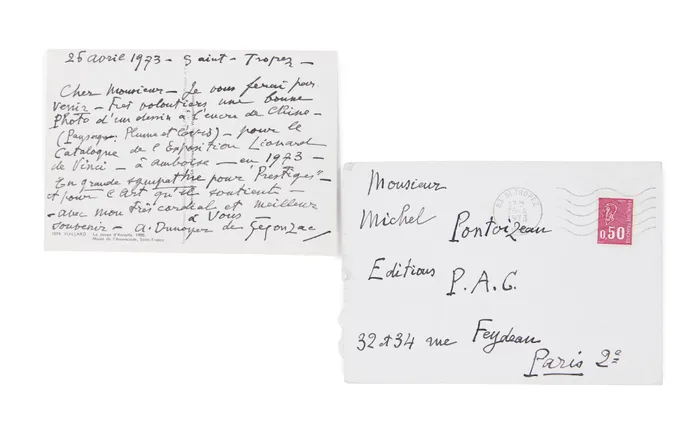 25 avril 1973 - Saint - Tropez -
Cher Monsieur - Je vous ferai par
venir - Très volontiers une bonne
Photo d'un dessin à l'encre de Chine -
(Paysage. Plume et lavis) - pour le
Catalogue de l'Exposition Léonard
de Vinci - à Amboise - en 1973 -
En grande sympathie pour "Prestiges" -
et pour l'Art qu'il soutient -
- avec mon très cordial et meilleur
à Vous
souvenir - A. Dunoyer de Segonzac
VUILLARD
Musée de l'Annonciade, Saint-Tropez
Monsieur
Michel Pontoizeau
Editions P.A.G.
32 et 34 rue Feydeau
Paris 2e
0,50